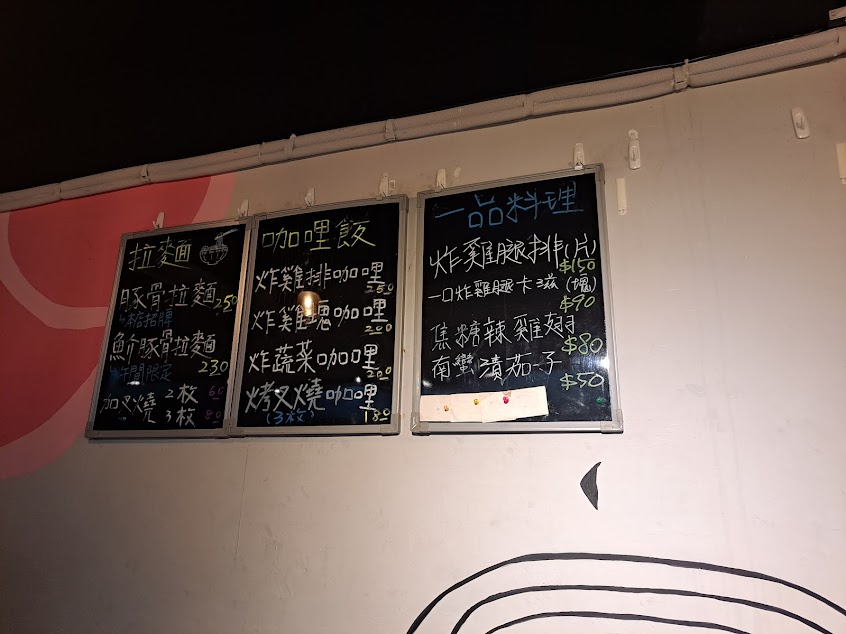 拉麵
豚骨拉麵 250
↳本店招牌
魚介豚骨拉麵
↳午間限定 230
加叉燒 2枚 60
3枚 80
咖哩飯
炸雞排咖哩
炸雞塊咖哩 200
炸蔬菜咖哩 200
烤叉燒咖哩
(3枚) 180
一品料理
炸雞腿排(片)
$150
一口炸雞腿卡滋(塊)
$90
焦糖辣雞翅
$80
南蠻漬茄子
$50